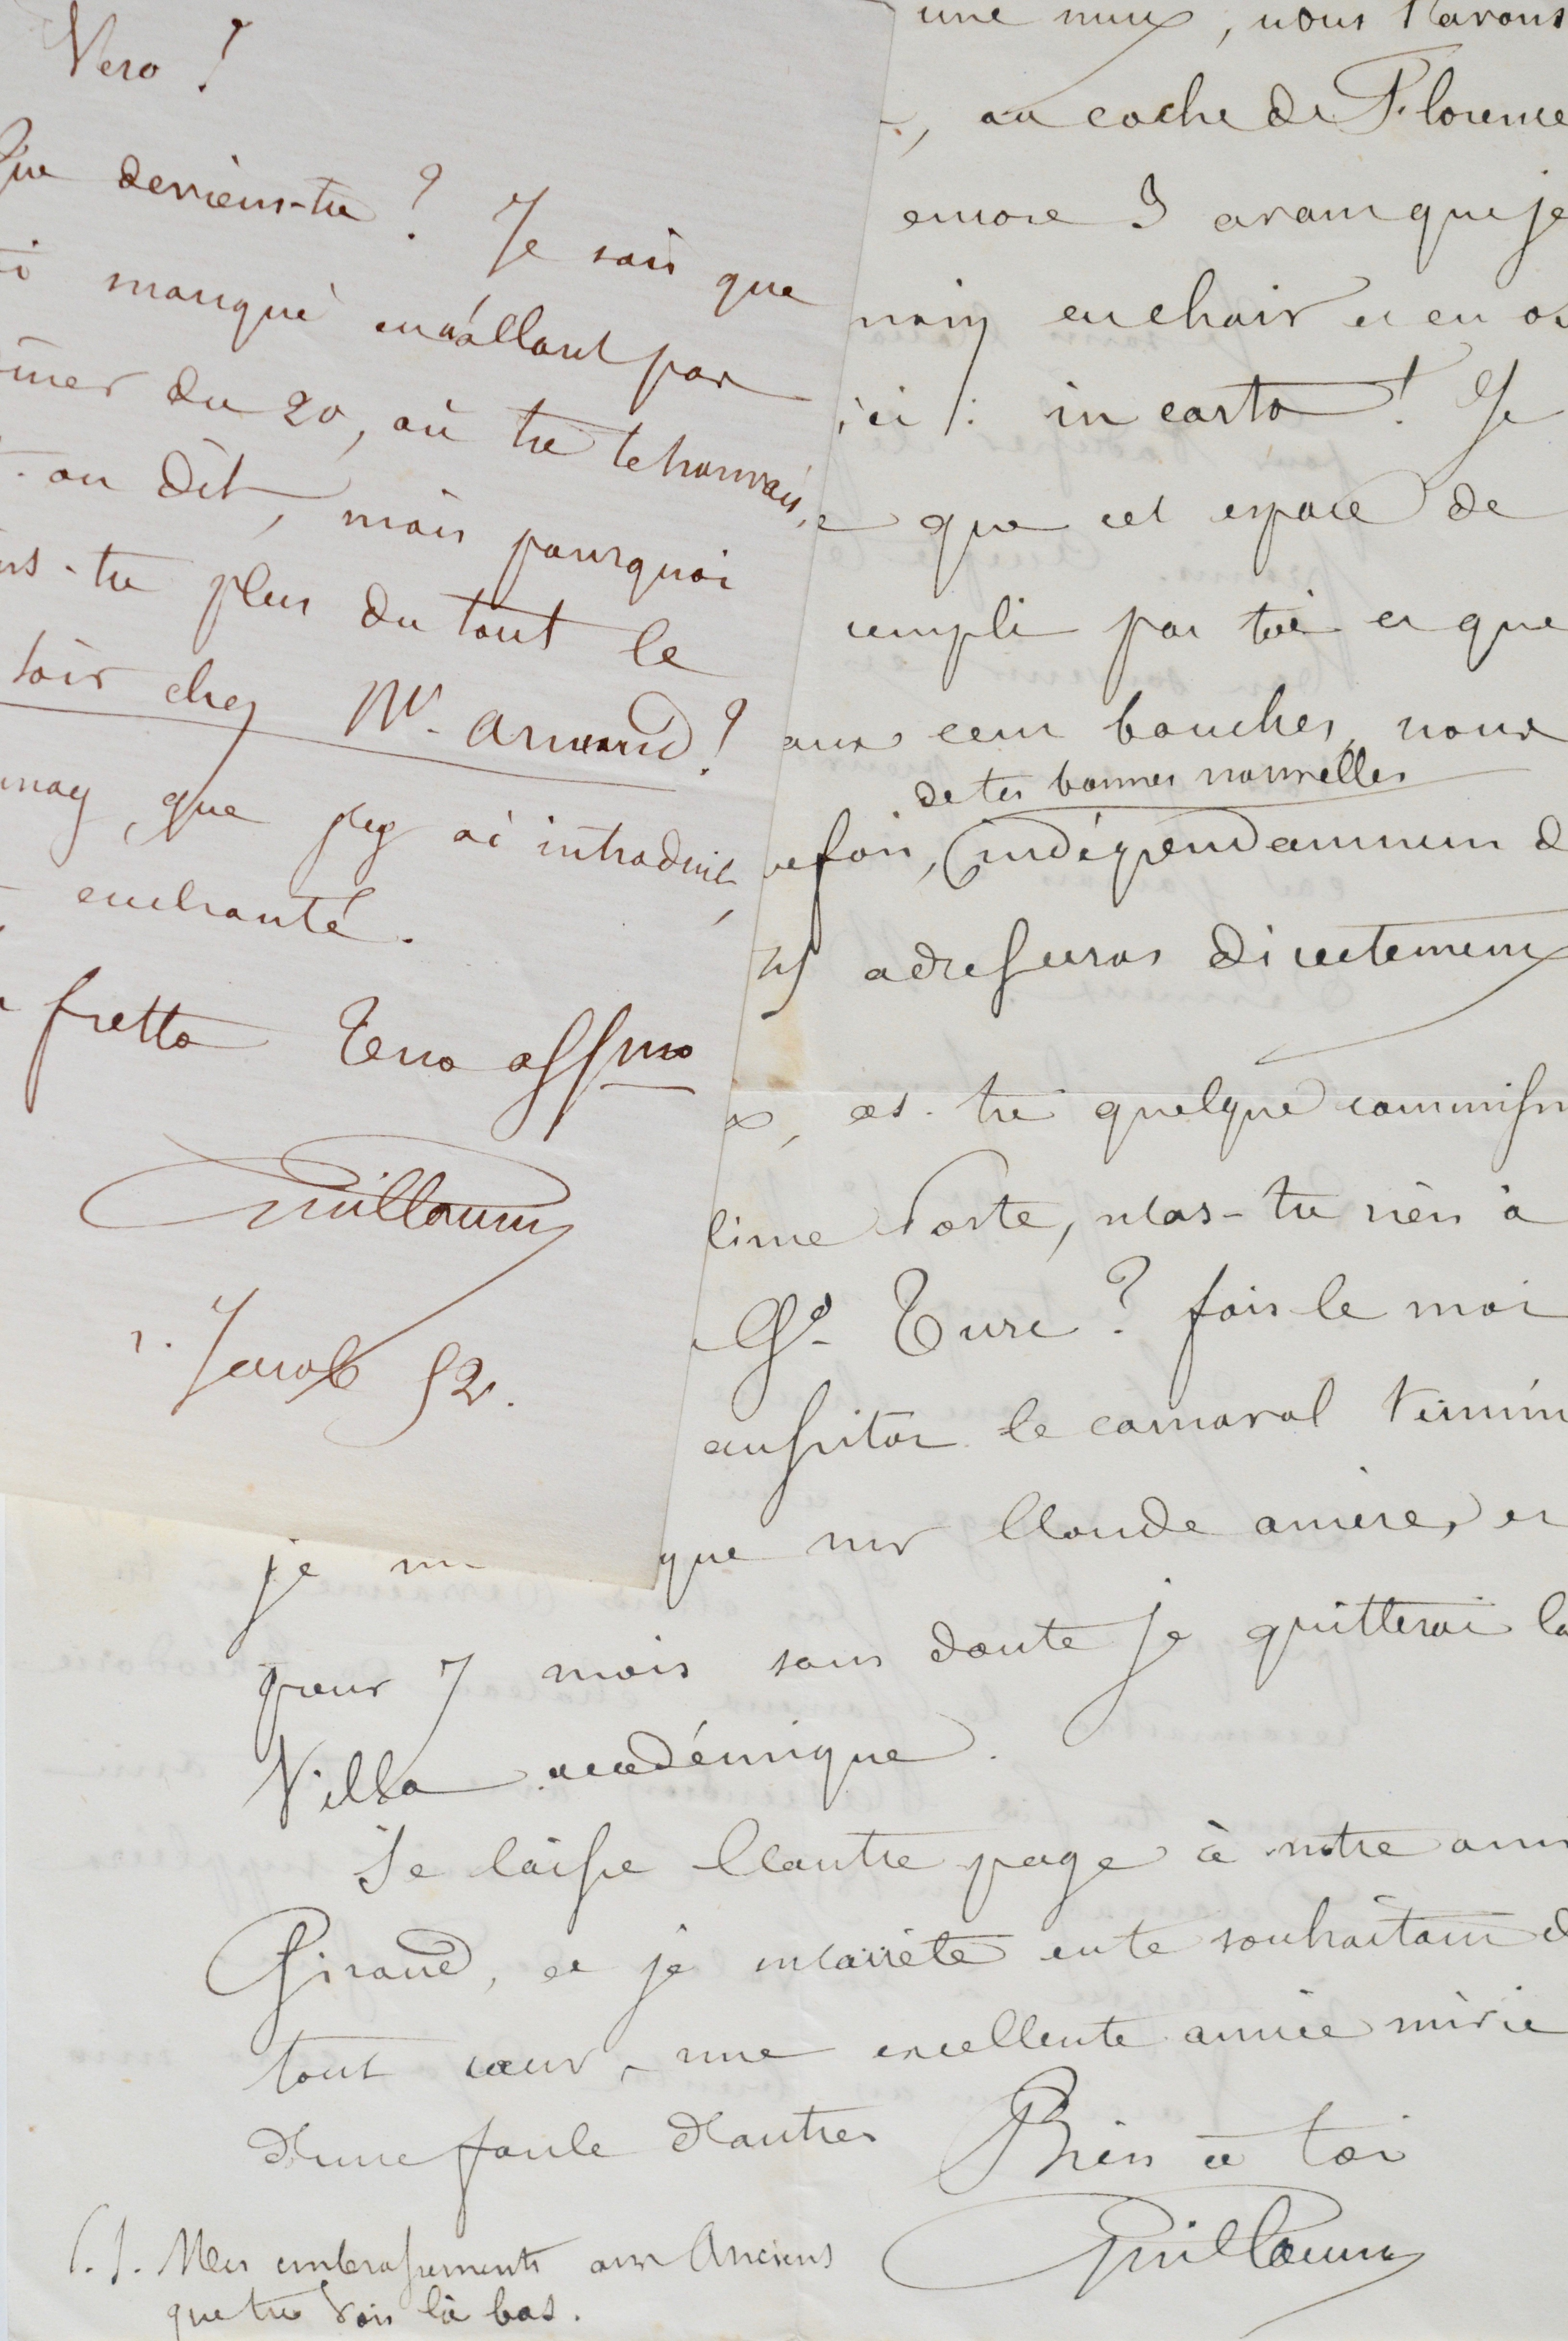 Vero !
Que deviens-tu ? Je sais que
manqué en allant par
du 20, où tu te trouvais,
on dit, mais pourquoi
-tu plus du tout le
soir chez Mr. Armand ?
que j'y ai introduit,
enchanté.
fretta Tuo affmo
Guillaume
r. Jacob 52.
une , nous l'avons
au coche de Florence
encore 3 avant que je
en chair et en os
ici : in carta ! Je
que cet espace de
rempli par toi et que
aux cent bouches, nous
de tes bonnes nouvelles
efois, indépendamment d
adresseras directement
as-tu quelque commission
lime Porte, n'as-tu rien à
Gd Turc ? fais le moi
aussitôt le carnaval termin
je que sur l'onde amère, et
pour 7 mois sans doute je quitterai la
Villa académique.
Je laisse l'autre page à notre ami
Giraud, et je m'arrête en te souhaitant d
tout cœur, une excellente année suivie
d'une foule d'autres Bien à toi
Guillaume
P.S. Mes embrassements aux Anciens
que tu vois là bas.